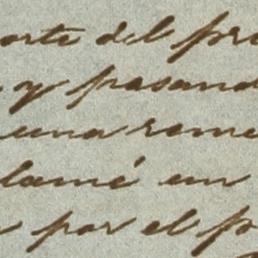 orte del pr
y pasand
una rome
lamé un
por el p